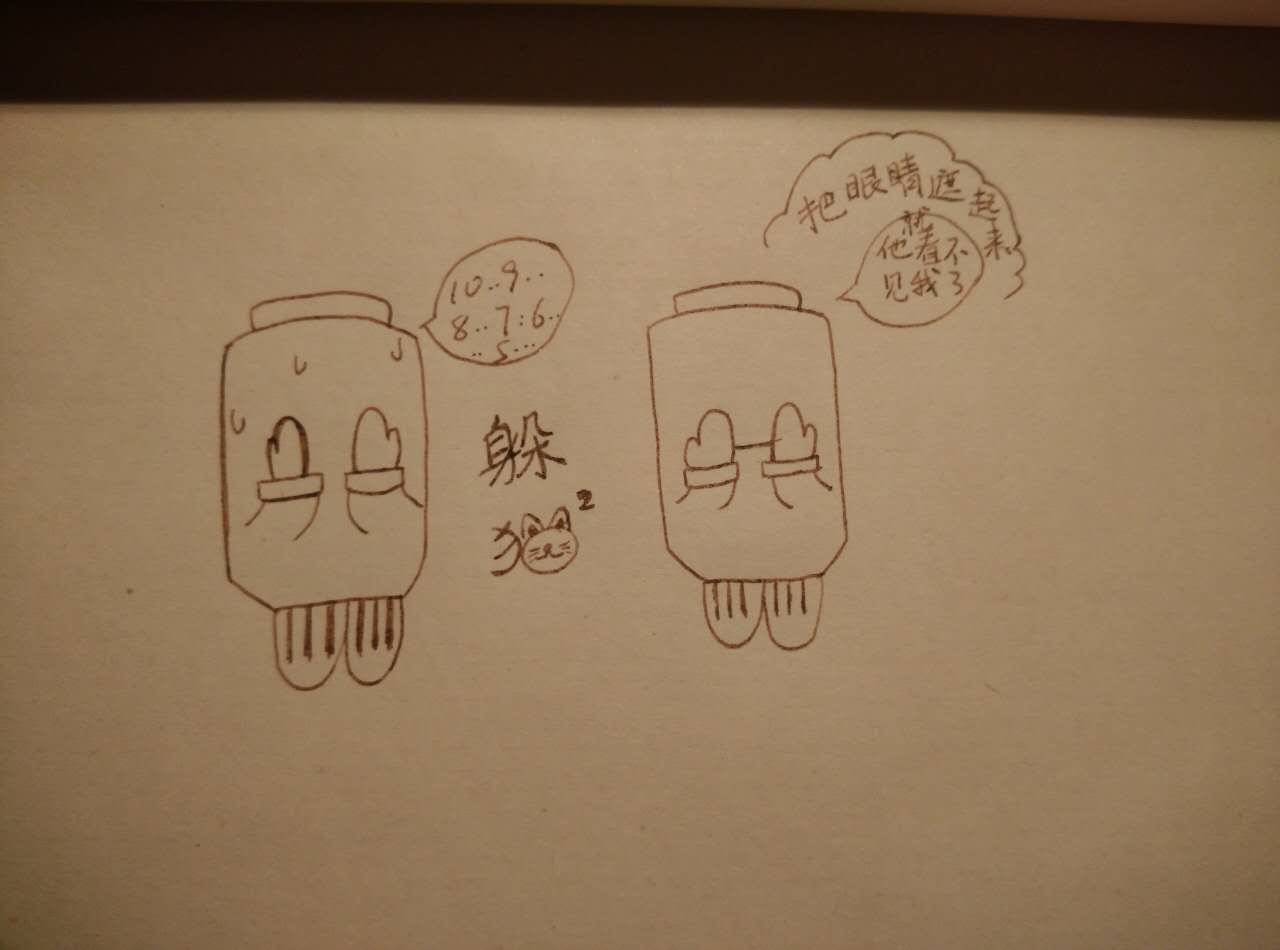 10..9..
8..7:6..
..5...
躲
2
把眼睛遮起来
就
他看不
见我了